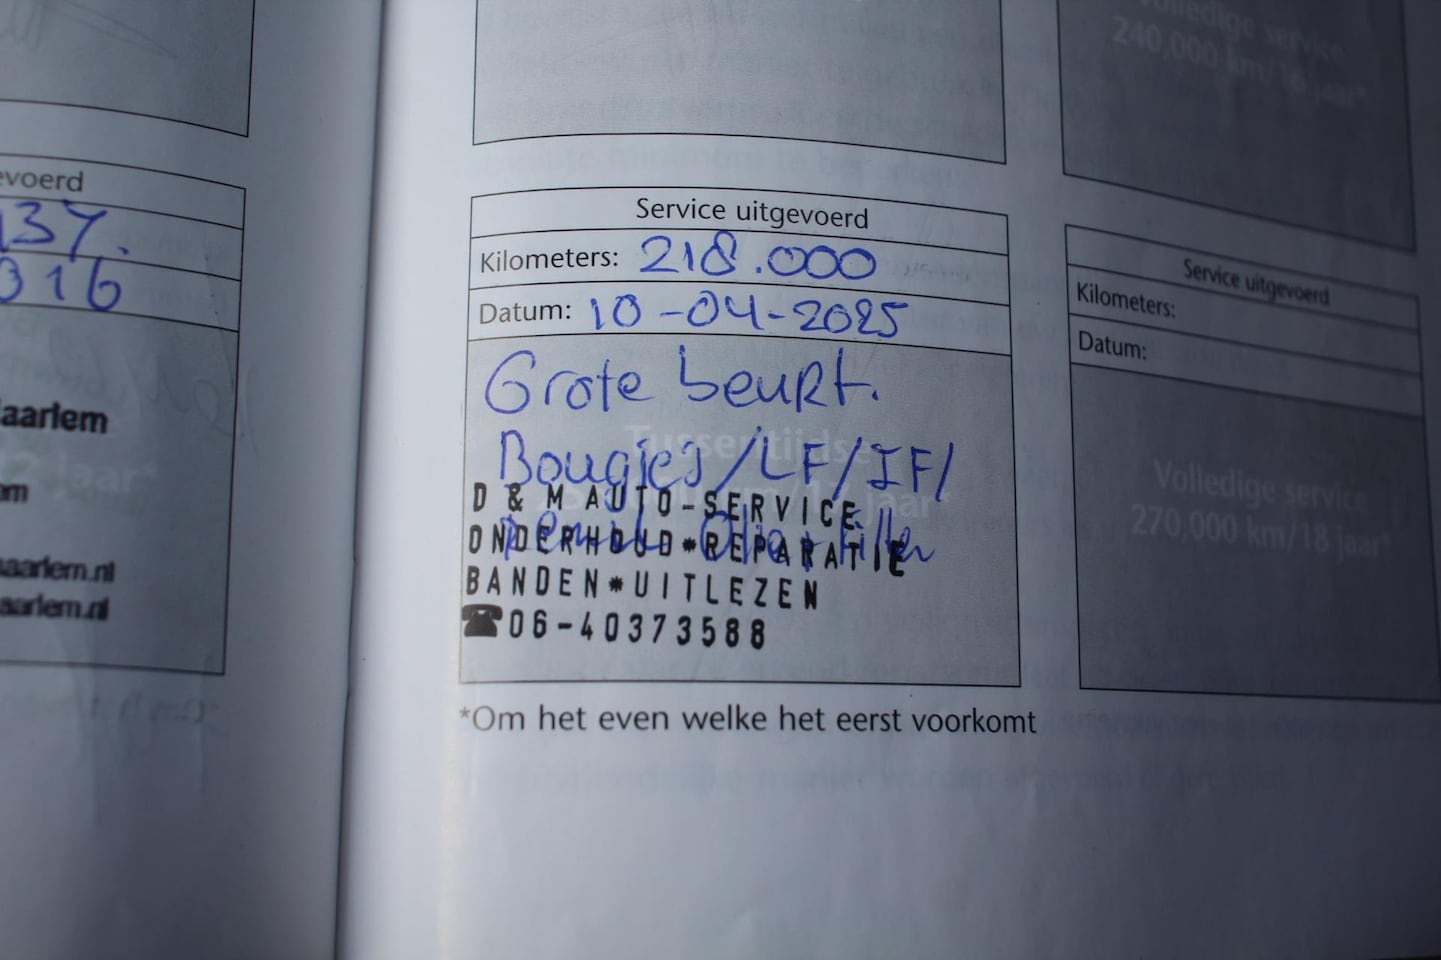 evoerd
137.
016
aarlem
12 jaar*
om
aarlem.nl
aarlem.nl
Service uitgevoerd
Kilometers: 218.000
Datum: 10-04-2025
Grote beurt.
Bougies/LF/IF/
Tussentijdse
jaar*
Olie + filter
D & M AUTO-SERVICE
ONDERHOUD*REPARATIE
BANDEN*UITLEZEN
☎06-40373588
*Om het even welke het eerst voorkomt
Volledige service
240,000 km/16 jaar*
Service uitgevoerd
Kilometers:
Datum:
Volledige service
270,000 km/18 jaar*